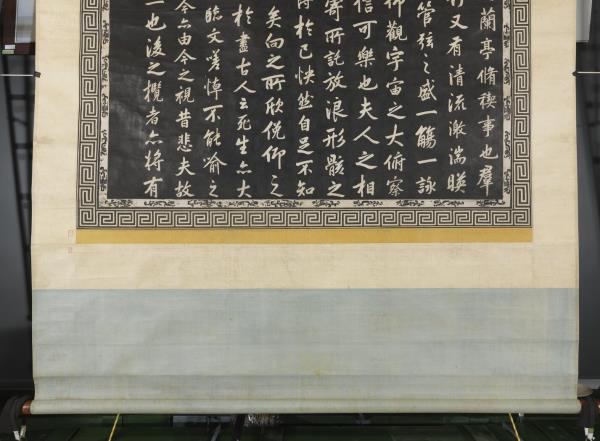 蘭亭脩禊事也羣
竹又有清流激湍暎
管弦之盛一觴一詠
仰觀宇宙之大俯察
信可樂也夫人之相
寄所託放浪形骸之
得於己快然自足不知
矣向之所欣俛仰之
於盡古人云死生亦大
臨文嗟悼不能喻之
今亦由今之視昔悲夫故
一也後之攬者亦將有